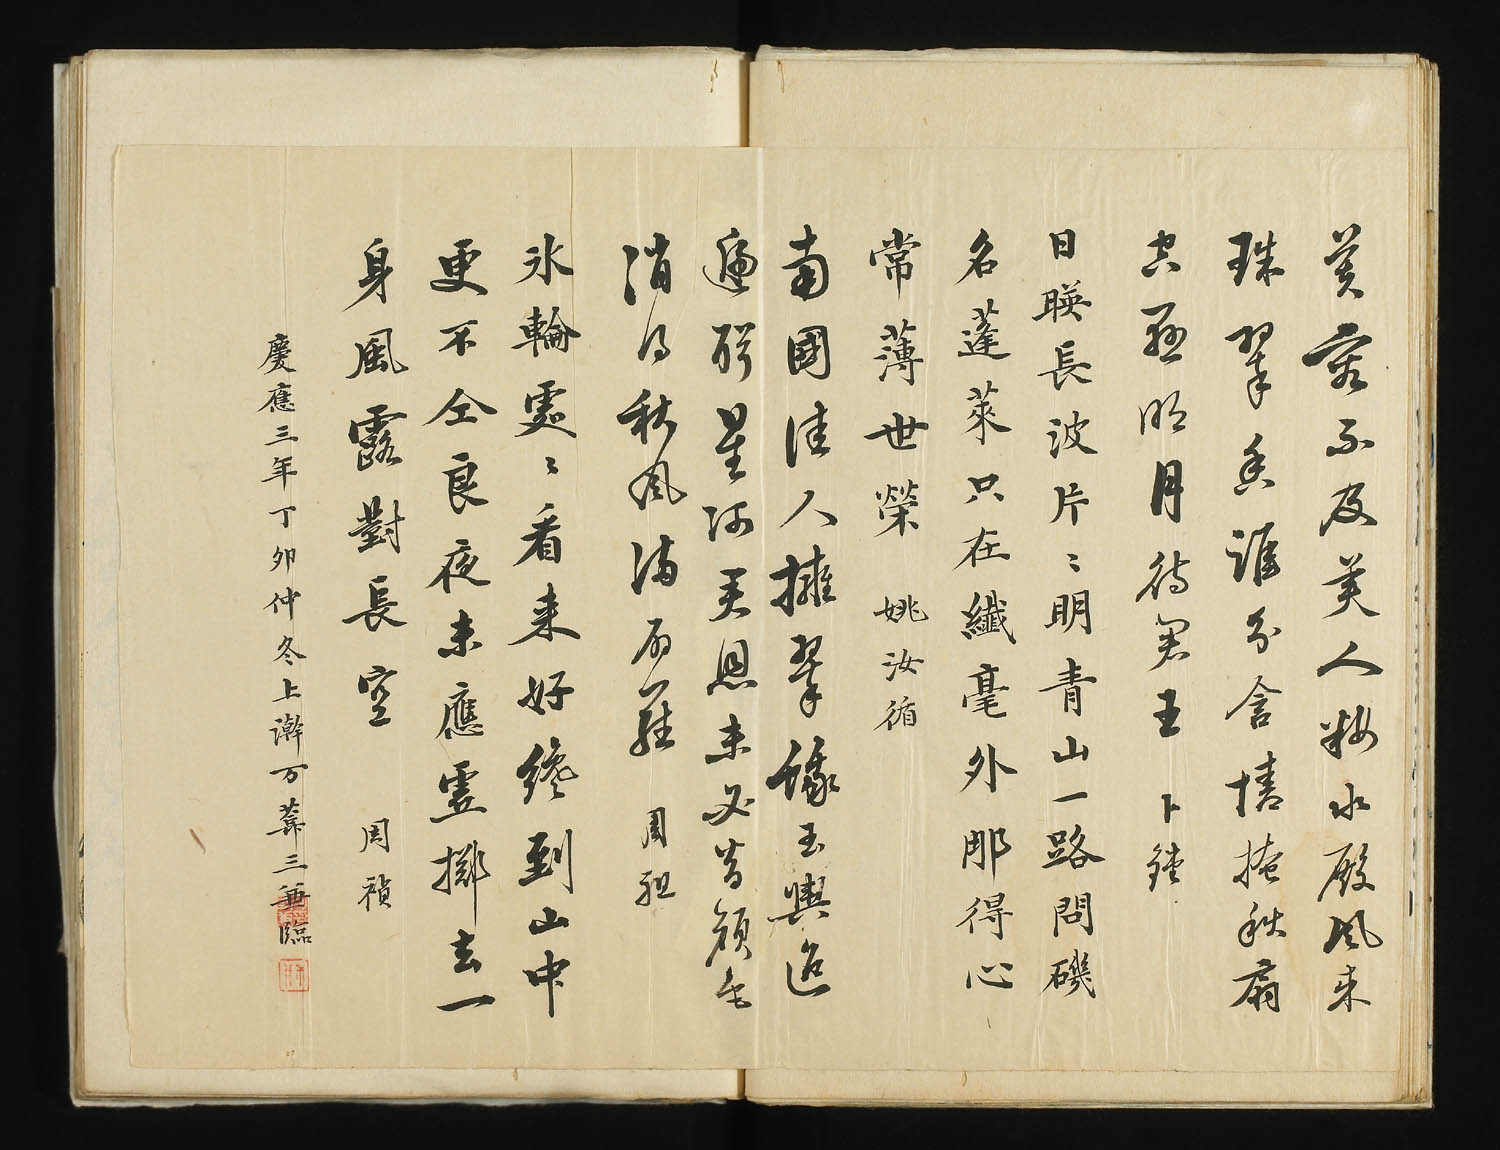 芙蓉不及美人妝水殿風來
珠翠香誰分含情掩秋扇
空懸明月待君王 卜鍾
日暎長波片〻明青山一路問磯
名蓬萊只在纖毫外那得心
常薄世榮 姚汝循
南國佳人擁翠 玉輿迢
遞 星河君恩未必者顏色
消得秋風滿 羅 周祖
氷輪處〻看來好纔到山中
更不仝良夜未應虛擲去一
身風露對長空 周禎
慶應三年丁卯仲冬上澣万菴三 臨